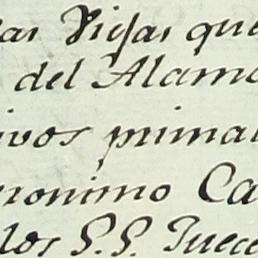 las Viejas que
del Alamo
ivos primal
eronimo Ca
los S.S. Juece